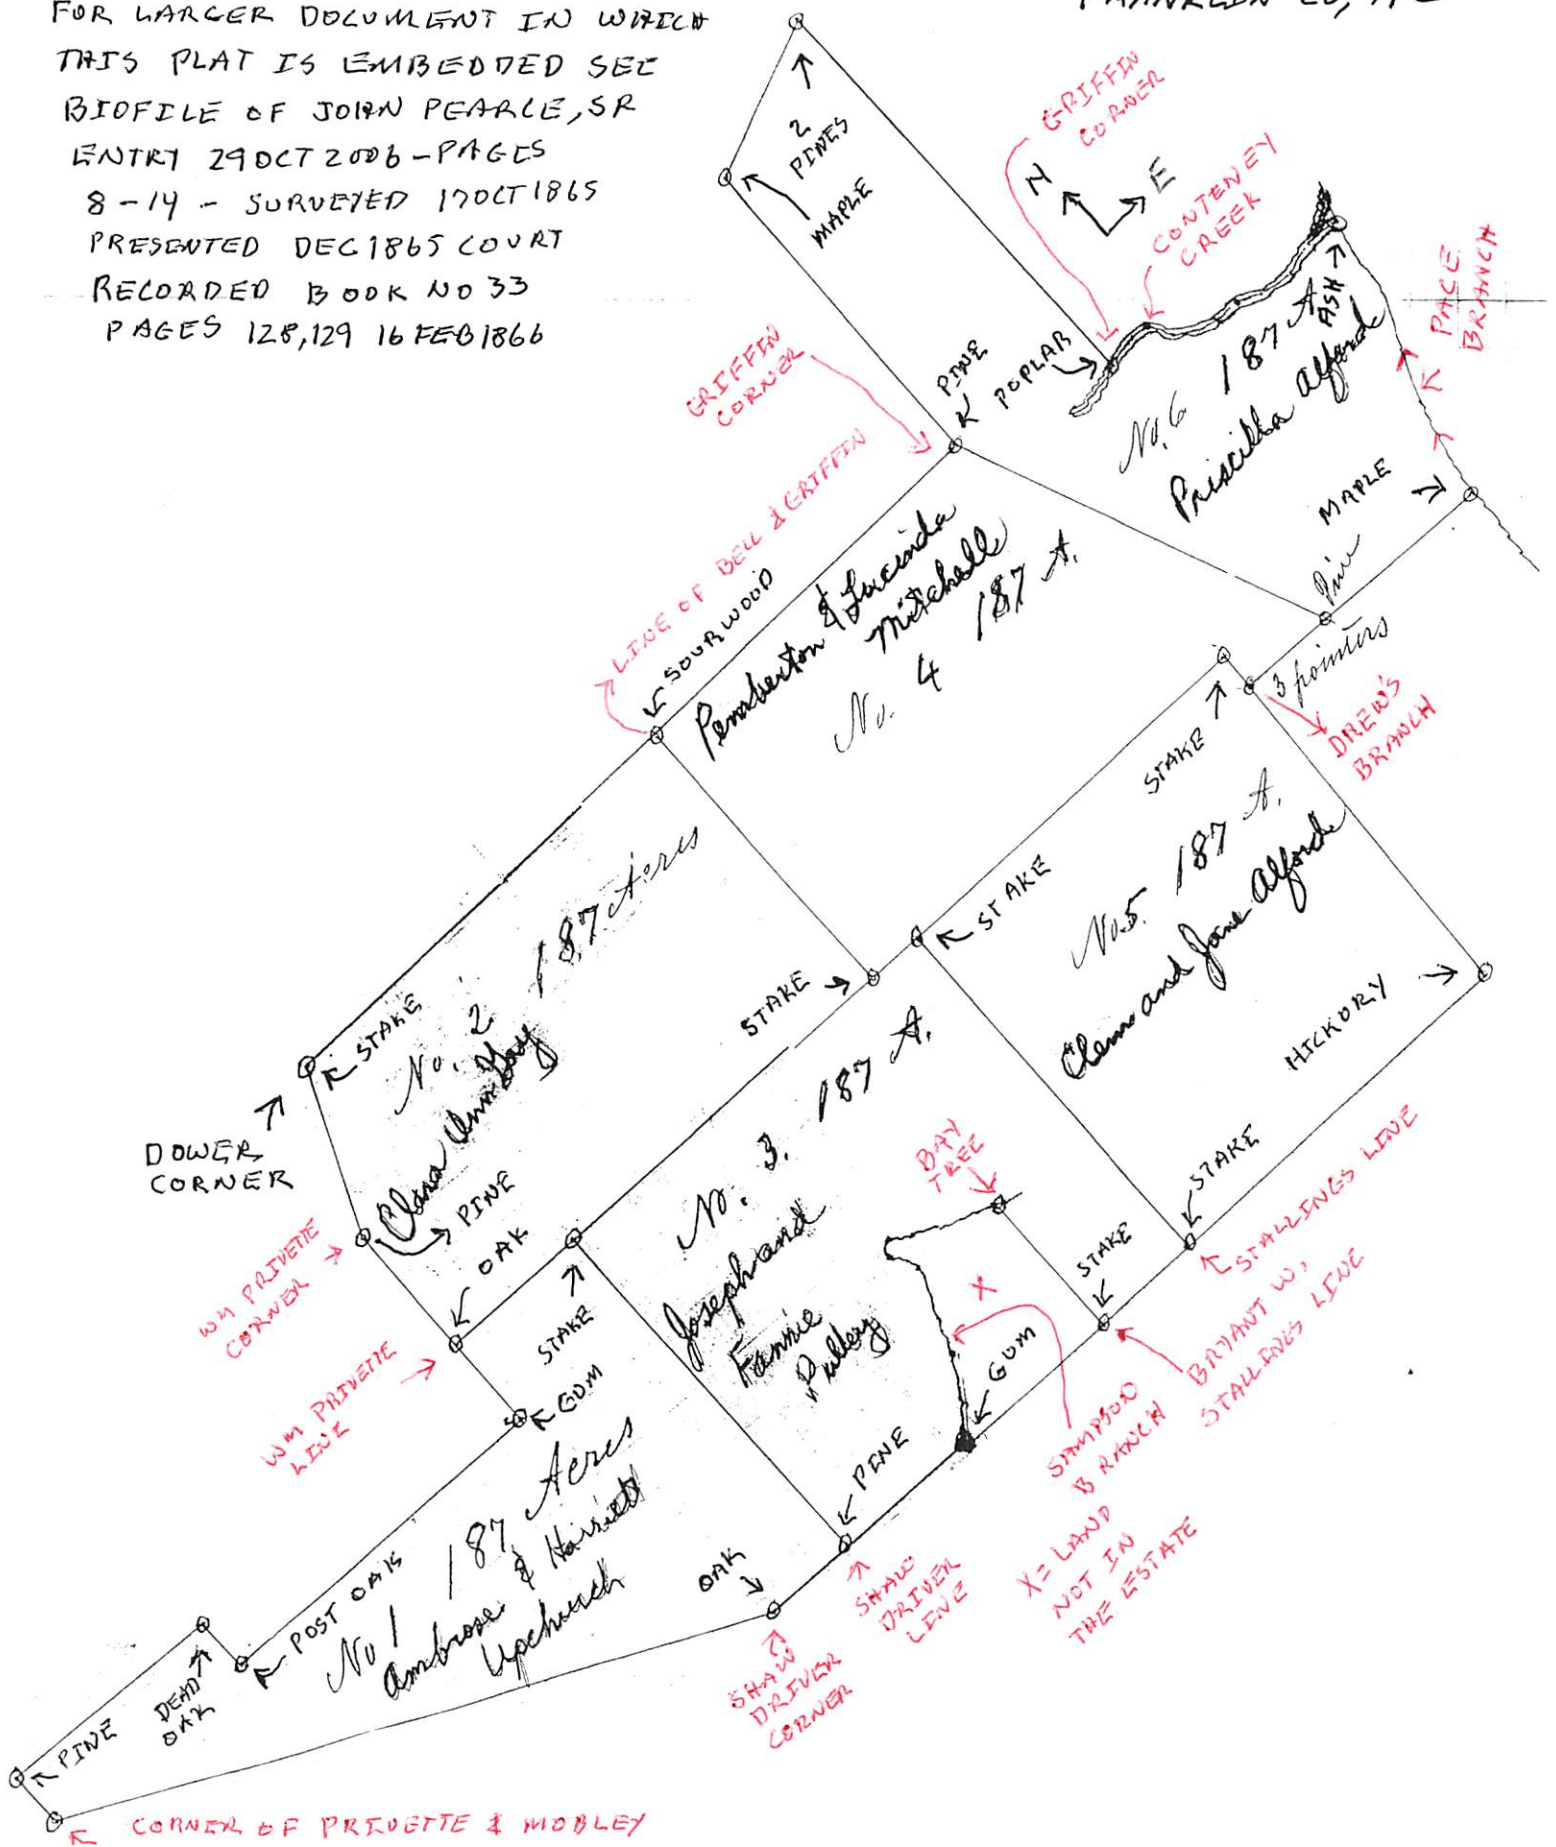 FOR LARGER DOCUMENT IN WHICH
THIS PLAT IS EMBEDDED SEE
BIOFILE OF JOHN PEARCE, SR
ENTRY 29 OCT 2006 - PAGES
8 - 14 - SURVEYED 17 OCT 1865
PRESENTED DEC 1865 COURT
RECORDED BOOK NO 33
PAGES 128, 129 16 FEB 1866
FRANKLIN CO,
2
PINES
MAPLE
GRIFFIN
CORNER
N
E
CONTENEY
CREEK
PACE
BRANCH
ASH
GRIFFIN
CORNER
PINE
POPLAR
No. 6 187 A
Priscilla Alford
MAPLE
Pine
3 pointers
DREW'S
BRANCH
LINE OF BELL & GRIFFIN
SOURWOOD
Pemberton & Lucinda
Mitchell
No. 4 187 A.
STAKE
STAKE
No. 5. 187 A.
Clem and Jane Alford
HICKORY
STAKE
STALLINGS LINE
STAKE
No. 2 187 Acres
Clara Ann Gay
STAKE
DOWER
CORNER
PINE
OAK
WM PRIVETTE
CORNER
WM PRIVETTE
LINE
No. 3. 187 A.
Joseph and
Fannie
Pullery
BAY
TREE
X
STAKE
GUM
BRYANT W.
STALLINGS LINE
SAMPSON
BRANCH
X = LAND
NOT IN
THE ESTATE
STAKE
GUM
PINE
SHAW
DRIVER
LINE
OAK
SHAW
DRIVER
CORNER
No 1 187 Acres
Ambrose & Harriett
Upchurch
POST OAKS
DEAD
OAK
PINE
CORNER OF PRIVETTE & MOBLEY